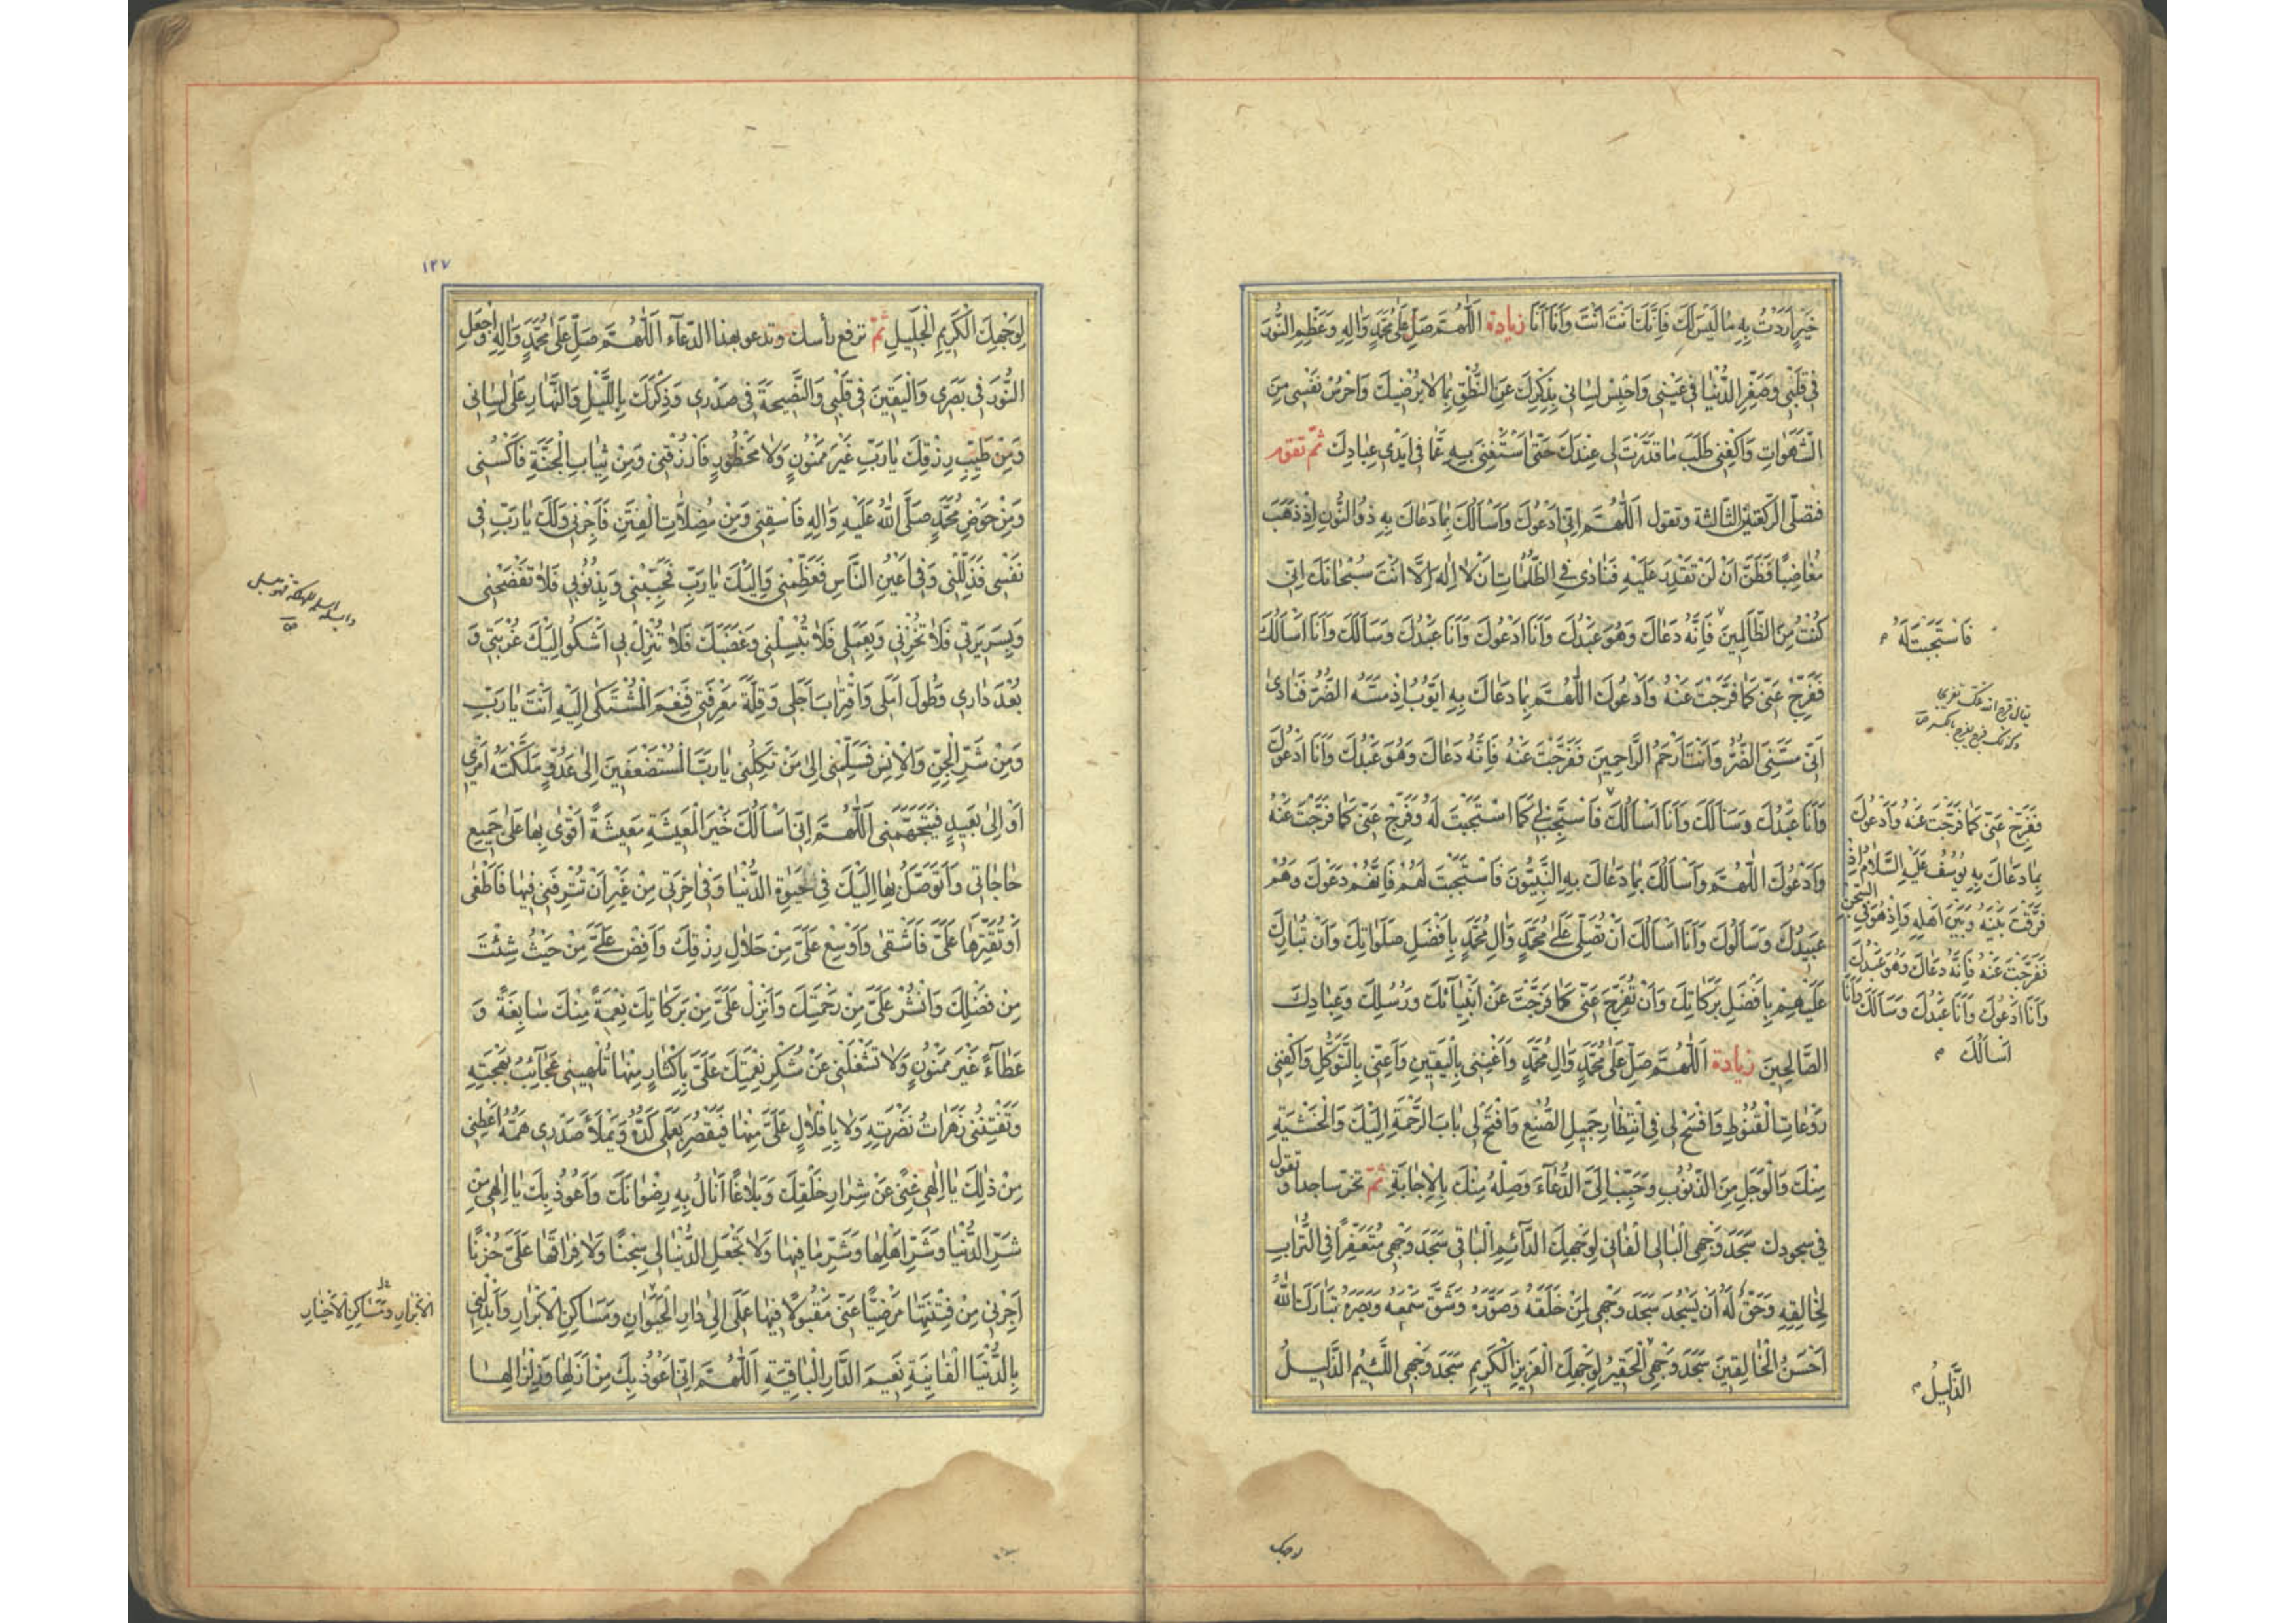 خَيْرٍ اَرَدْتُ بِهِ مٰا لَيْسَ لَكَ فَاِنَّكَ اَنْتَ اَنْتَ وَاَنَا اَنَا زيادة اَللّٰهُمَّ صَلِّ عَلىٰ مُحَمَّدٍ وَاٰلِهِ وَعَظِّمِ النُّورَ
فى قَلْبى وَصَغِّرِ الدُّنْيٰا فى عَيْنى وَاحْبِسْ لِسٰانى بِذِكْرِكَ عَنِ النُّطْقِ بِمٰا لاٰ يُرْضيكَ وَاحْرُسْ نَفْسى مِنَ
الشَّهَوٰاتِ وَاكْفِنى طَلَبَ مٰا قَدَّرْتَ لى عِنْدَكَ حَتّىٰ اَسْتَغْنِىَ بِهِ عَمّٰا فى اَيْدى عِبٰادِكَ ثمّ تقوم
فتصلّى الرّكعتين الثّالثة وتقول اَللّٰهُمَّ اِنّى اَدْعُوكَ وَاَسْاَلُكَ بِمٰا دَعٰاكَ بِهِ ذُو النُّونِ اِذْ ذَهَبَ
مُغٰاضِبًا فَظَنَّ اَنْ لَنْ تَقْدِرَ عَلَيْهِ فَنٰادىٰ فِى الظُّلُمٰاتِ اَنْ لاٰ اِلٰهَ اِلاّٰ اَنْتَ سُبْحٰانَكَ اِنّى
كُنْتُ مِنَ الظّٰالِمينَ فَاِنَّهُ دَعٰاكَ وَهُوَ عَبْدُكَ وَاَنَا اَدْعُوكَ وَاَنَا عَبْدُكَ وَسَاَلَكَ وَاَنَا اَسْاَلُكَ
فَاسْتَجَبْتَ لَهُ
فَفَرِّجْ عَنّى كَمٰا فَرَّجْتَ عَنْهُ وَاَدْعُوكَ اللّٰهُمَّ بِمٰا دَعٰاكَ بِهِ اَيُّوبُ اِذْ مَسَّهُ الضُّرُّ فَنٰادىٰ
اَنّى مَسَّنِىَ الضُّرُّ وَاَنْتَ اَرْحَمُ الرّٰاحِمينَ فَفَرَّجْتَ عَنْهُ فَاِنَّهُ دَعٰاكَ وَهُوَ عَبْدُكَ وَاَنَا اَدْعُوكَ
وَاَنَا عَبْدُكَ وَسَاَلَكَ وَاَنَا اَسْاَلُكَ فَاسْتَجِبْ لى كَمَا اسْتَجَبْتَ لَهُ وَفَرِّجْ عَنّى كَمٰا فَرَّجْتَ عَنْهُ
وَاَدْعُوكَ اللّٰهُمَّ وَاَسْاَلُكَ بِمٰا دَعٰاكَ بِهِ النَّبِيُّونَ فَاسْتَجَبْتَ لَهُمْ فَاِنَّهُمْ دَعَوْكَ وَهُمْ
عَبيدُكَ وَسَاَلُوكَ وَاَنَا اَسْاَلُكَ اَنْ تُصَلِّىَ عَلىٰ مُحَمَّدٍ وَاٰلِ مُحَمَّدٍ بِاَفْضَلِ صَلَوٰاتِكَ وَاَنْ تُبٰارِكَ
عَلَيْهِمْ بِاَفْضَلِ بَرَكٰاتِكَ وَاَنْ تُفَرِّجَ عَنّى كَمٰا فَرَّجْتَ عَنْ اَنْبِيٰآئِكَ وَرُسُلِكَ وَعِبٰادِكَ
الصّٰالِحينَ زيادة اَللّٰهُمَّ صَلِّ عَلىٰ مُحَمَّدٍ وَاٰلِ مُحَمَّدٍ وَاَغْنِنى بِالْيَقينِ وَاَعِنّى بِالتَّوَكُّلِ وَاكْفِنى
رَوْعٰاتِ الْقُنُوطِ وَافْسَحْ لى فِى انْتِظٰارِ جَميلِ الصُّنْعِ وَافْتَحْ لى بٰابَ الرَّحْمَةِ اِلَيْكَ وَالْخَشْيَةِ
مِنْكَ وَالْوَجَلِ مِنَ الذُّنُوبِ وَحَبِّبْ اِلَىَّ الدُّعٰآءَ وَصِلْهُ مِنْكَ بِالْاِجٰابَةِ ثمّ تخرّ ساجدا و تقول
فى سجودك سَجَدَ وَجْهِىَ الْبٰالِى الْفٰانى لِوَجْهِكَ الدّٰآئِمِ الْبٰاقى سَجَدَ وَجْهى مُتَعَفِّرًا فِى التُّرٰابِ
لِخٰالِقِهِ وَحَقَّ لَهُ اَنْ يَسْجُدَ سَجَدَ وَجْهى لِمَنْ خَلَقَهُ وَصَوَّرَهُ وَشَقَّ سَمْعَهُ وَبَصَرَهُ تَبٰارَكَ اللّٰهُ
اَحْسَنُ الْخٰالِقينَ سَجَدَ وَجْهِىَ الْحَقيرُ لِوَجْهِكَ الْعَزيزِ الْكَريمِ سَجَدَ وَجْهِىَ اللَّئيمُ الذَّليلُ
فَفَرِّجْ عَنّى كَمٰا فَرَّجْتَ عَنْهُ وَاَدْعُوكَ
بِمٰا دَعٰاكَ بِهِ يُوسُفُ عَلَيْهِ السَّلاٰمُ اِذْ
فَرَّقْتَ بَيْنَهُ وَبَيْنَ اَهْلِهِ وَاِذْ هُوَ فِى السِّجْنِ
فَفَرَّجْتَ عَنْهُ فَاِنَّهُ دَعٰاكَ وَهُوَ عَبْدُكَ
وَاَنَا اَدْعُوكَ وَاَنَا عَبْدُكَ وَسَاَلَكَ وَاَنَا
اَسْاَلُكَ
الذَّليلُ
لوجهك
١٢٧
لِوَجْهِكَ الْكَريمِ الْجَليلِ ثمّ ترفع رأسك وتدعو بهذا الدّعآء اَللّٰهُمَّ صَلِّ عَلىٰ مُحَمَّدٍ وَاٰلِهِ وَاجْعَلِ
النُّورَ فى بَصَرى وَالْيَقينَ فى قَلْبى وَالنَّصيحَةَ فى صَدْرى وَذِكْرَكَ بِاللَّيْلِ وَالنَّهٰارِ عَلىٰ لِسٰانى
وَمِنْ طَيِّبِ رِزْقِكَ يٰا رَبِّ غَيْرَ مَمْنُونٍ وَلاٰ مَحْظُورٍ فَارْزُقْنى وَمِنْ ثِيٰابِ الْجَنَّةِ فَاكْسُنى
وَمِنْ حَوْضِ مُحَمَّدٍ صَلَّى اللّٰهُ عَلَيْهِ وَاٰلِهِ فَاسْقِنى وَمِنْ مُضِلاّٰتِ الْفِتَنِ فَاَجِرْنى وَلَكَ يٰا رَبِّ فى
نَفْسى فَذَلِّلْنى وَفى اَعْيُنِ النّٰاسِ فَعَظِّمْنى وَاِلَيْكَ يٰا رَبِّ فَحَبِّبْنى وَبِذُنُوبى فَلاٰ تَفْضَحْنى
وَبِسَريرَتى فَلاٰ تُخْزِنى وَبِعَمَلى فَلاٰ تُبْسِلْنى وَغَضَبَكَ فَلاٰ تُنْزِلْ بى اَشْكُو اِلَيْكَ غُرْبَتى وَ
بُعْدَ دٰارى وَطُولَ اَمَلى وَاقْتِرٰابَ اَجَلى وَقِلَّةَ مَعْرِفَتى فَنِعْمَ الْمُشْتَكىٰ اِلَيْهِ اَنْتَ يٰا رَبِّ
وَمِنْ شَرِّ الْجِنِّ وَالْاِنْسِ فَسَلِّمْنى اِلىٰ مَنْ تَكِلُنى يٰا رَبَّ الْمُسْتَضْعَفينَ اِلىٰ عَدُوٍّ مَلَّكْتَهُ اَمْرى
اَوْ اِلىٰ بَعيدٍ فَيَتَجَهَّمَنى اَللّٰهُمَّ اِنّى اَسْاَلُكَ خَيْرَ الْمَعيشَةِ مَعيشَةً اَقْوىٰ بِهٰا عَلىٰ جَميعِ
حٰاجٰاتى وَاَتَوَصَّلُ بِهٰا اِلَيْكَ فى حَيٰوةِ الدُّنْيٰا وَفى اٰخِرَتى مِنْ غَيْرِ اَنْ تُتْرِفَنى فيهٰا فَاَطْغىٰ
اَوْ تُقَتِّرَهٰا عَلَىَّ فَاَشْقىٰ وَاَوْسِعْ عَلَىَّ مِنْ حَلاٰلِ رِزْقِكَ وَاَفِضْ عَلَىَّ مِنْ حَيْثُ شِئْتَ
مِنْ فَضْلِكَ وَانْشُرْ عَلَىَّ مِنْ رَحْمَتِكَ وَاَنْزِلْ عَلَىَّ مِنْ بَرَكٰاتِكَ نِعْمَةً مِنْكَ سٰابِغَةً وَ
عَطٰآءً غَيْرَ مَمْنُونٍ وَلاٰ تَشْغَلْنى عَنْ شُكْرِ نِعْمَتِكَ عَلَىَّ بِاِكْثٰارٍ مِنْهٰا تُلْهينى عَجٰآئِبُ بَهْجَتِهِ
وَتَفْتِنُنى زَهَرٰاتُ نَضْرَتِهِ وَلاٰ بِاِقْلاٰلٍ عَلَىَّ مِنْهٰا فَيَقْصُرَ بِعَمَلى كَدُّهُ وَيَمْلَاَ صَدْرى هَمُّهُ اَعْطِنى
مِنْ ذٰلِكَ يٰا اِلٰهى غِنًى عَنْ شِرٰارِ خَلْقِكَ وَبَلاٰغًا اَنٰالُ بِهِ رِضْوٰانَكَ وَاَعُوذُ بِكَ يٰا اِلٰهى مِنْ
شَرِّ الدُّنْيٰا وَشَرِّ اَهْلِهٰا وَشَرِّ مٰا فيهٰا وَلاٰ تَجْعَلِ الدُّنْيٰا لى سِجْنًا وَلاٰ فِرٰاقَهٰا عَلَىَّ حُزْنًا
اَجِرْنى مِنْ فِتْنَتِهٰا مَرْضِيًّا عَنّى مَقْبُولاً فيهٰا عَمَلى اِلىٰ دٰارِ الْحَيَوٰانِ وَمَسٰاكِنِ الْاَبْرٰارِ وَاَبْدِلْنى
الْاَبْرٰارِ وَمَسٰاكِنِ الْاَخْيٰارِ
بِالدُّنْيَا الْفٰانِيَةِ نَعيمَ الدّٰارِ الْبٰاقِيَةِ اَللّٰهُمَّ اِنّى اَعُوذُ بِكَ مِنْ اَزْلِهٰا وَزِلْزٰالِهٰا